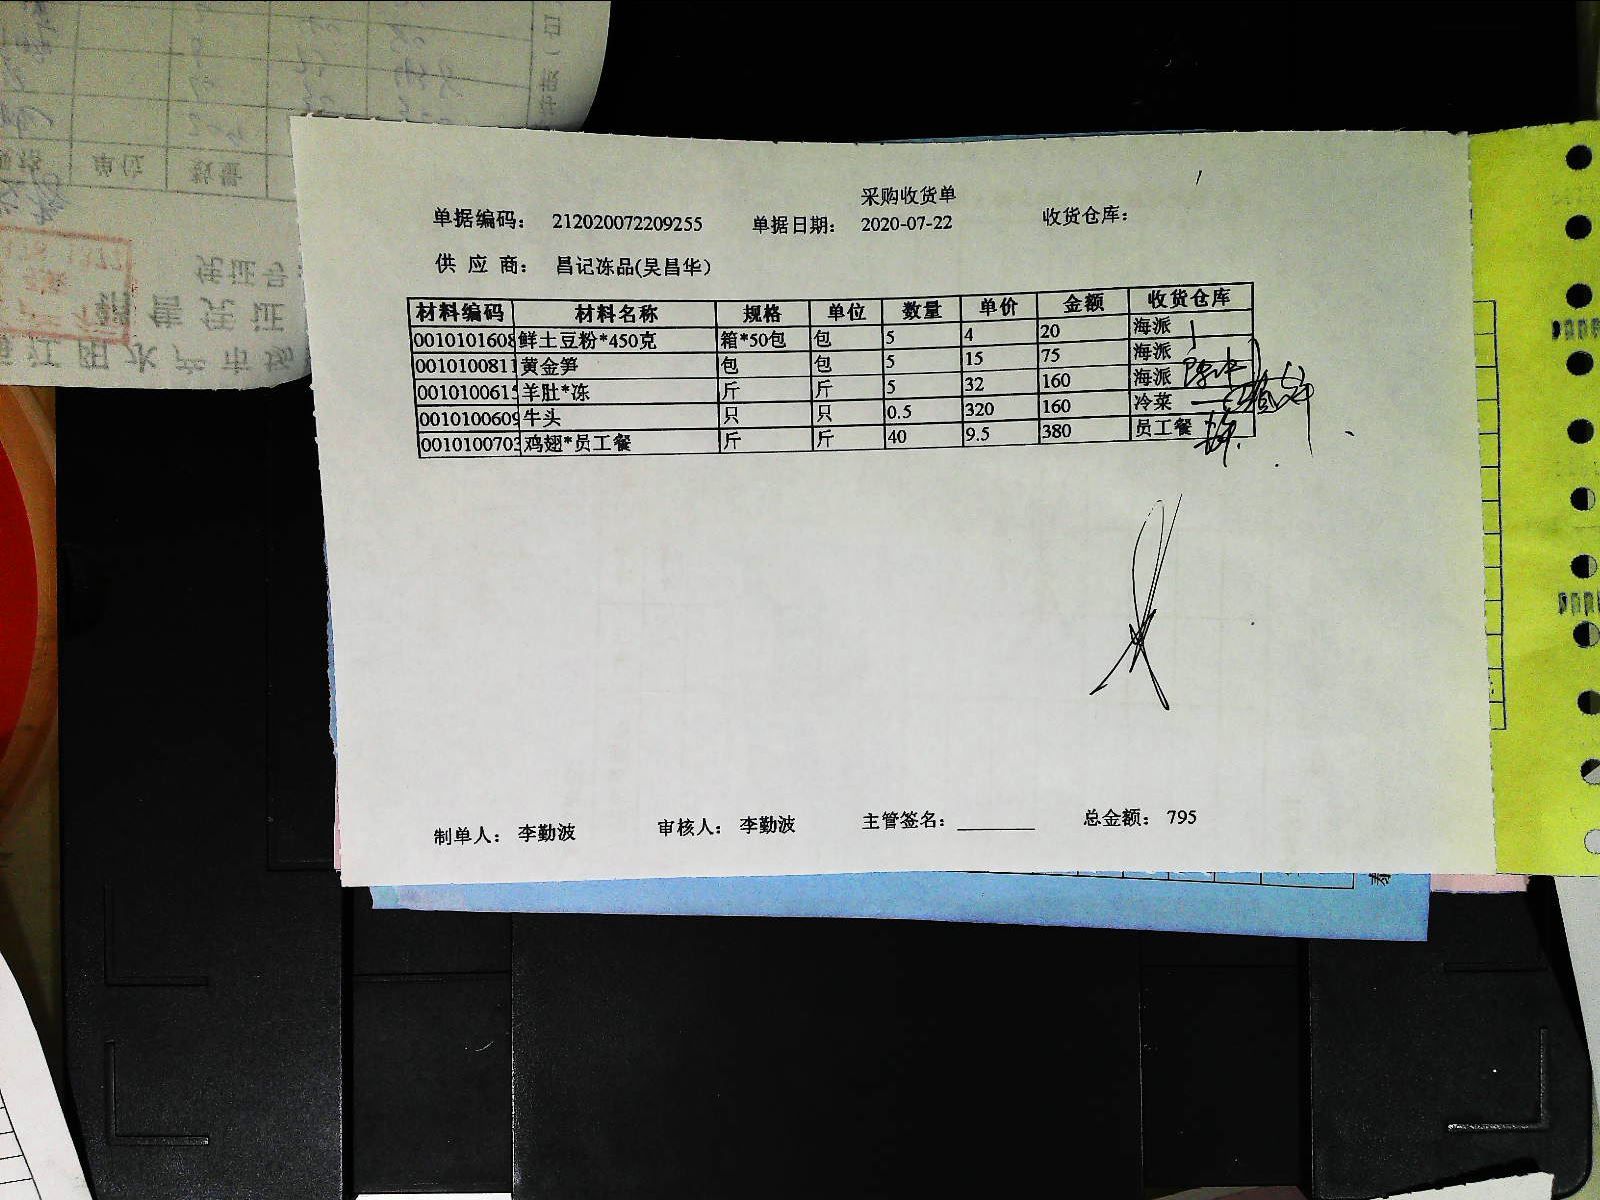 采购收货单
单据编码： 212020072209255 单据日期： 2020-07-22 收货仓库：
供 应 商： 昌记冻品(吴昌华）
材料编码 材料名称 规格 单位 数量 单价 金额 收货仓库
0010101608 鲜土豆粉*450克 箱*50包 包 5 4 20 海派
0010100811 黄金笋 包 包 5 15 75 海派
0010100615 羊肚*冻 斤 斤 5 32 160 海派
0010100609 牛头 只 只 0.5 320 160 冷菜
0010100703 鸡翅*员工餐 斤 斤 40 9.5 380 员工餐
制单人： 李勤波 审核人： 李勤波 主管签名： 总金额： 795
单位 数量
凭证号：
销售凭证
江阳水产市场